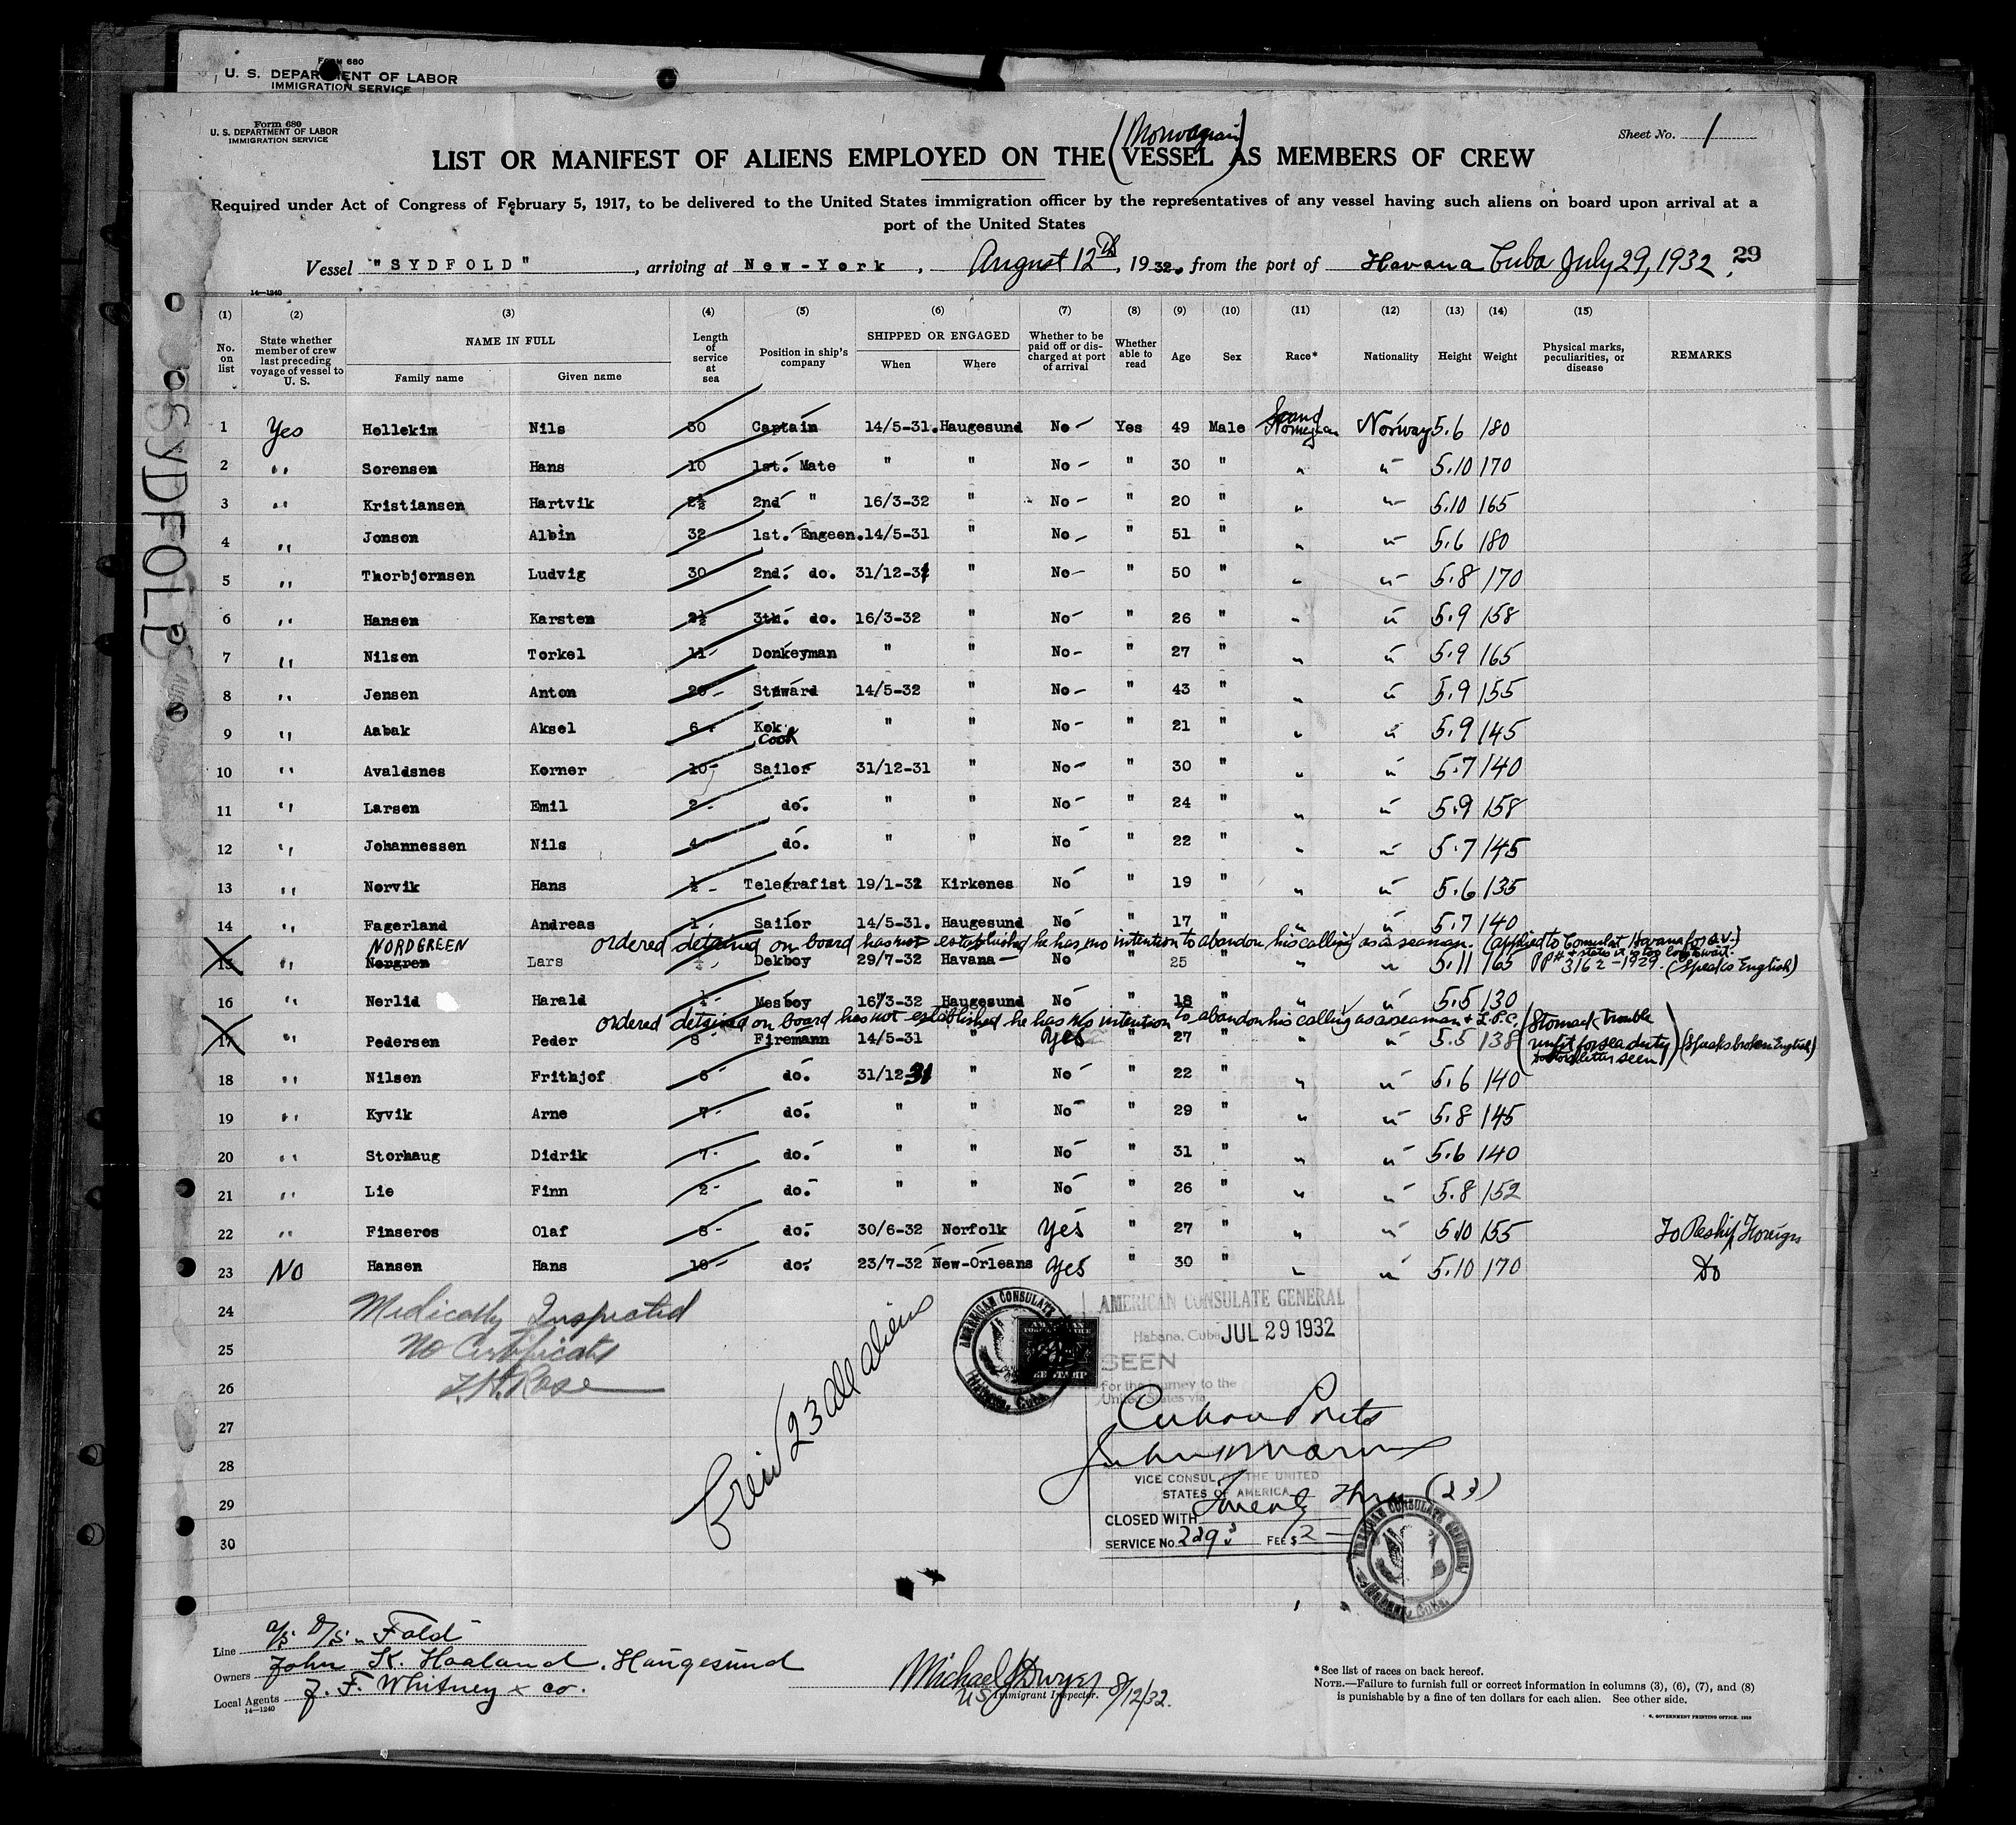 Form 680
U. S. DEPARTMENT OF LABOR
IMMIGRATION SERVICE
Form 680
U. S. DEPARTMENT OF LABOR
IMMIGRATION SERVICE
Sheet No. 1
(Norwegian)
LIST OR MANIFEST OF ALIENS EMPLOYED ON THE VESSEL AS MEMBERS OF CREW
Required under Act of Congress of February 5, 1917, to be delivered to the United States immigration officer by the representatives of any vessel having such aliens on board upon arrival at a
port of the United States
Vessel "SYDFOLD", arriving at New-York, August 12th, 1932, from the port of Havana Cuba July 29, 1932. 29
14—1240
(1) (2) (3) (4) (5) (6) (7) (8) (9) (10) (11) (12) (13) (14) (15)
No. on list | State whether member of crew last preceding voyage of vessel to U. S. | NAME IN FULL | Family name | Given name | Length of service at sea | Position in ship's company | SHIPPED OR ENGAGED | When | Where | Whether to be paid off or discharged at port of arrival | Whether able to read | Age | Sex | Race* | Nationality | Height | Weight | Physical marks, peculiarities, or disease | REMARKS
1 Yes Hellekim Nils 30 Captain 14/5-31. Haugesund No - Yes 49 Male Scand Norwegian Norway 5.6 180
2 " Sorensen Hans 10 1st. Mate " " No - " 30 " " " 5.10 170
3 " Kristiansen Hartvik 2½ 2nd " 16/3-32 " No - " 20 " " " 5.10 165
4 " Jonson Albin 32 1st. Engeen. 14/5-31 " No - " 51 " " " 5.6 180
5 " Thorbjornsen Ludvig 30 2nd. do. 31/12-31 " No - " 50 " " " 5.8 170
6 " Hansen Karsten 2½ 3th. do. 16/3-32 " No - " 26 " " " 5.9 158
7 " Nilsen Torkel 11 - Donkeyman " " No - " 27 " " " 5.9 165
8 " Jensen Anton 20 - Stuward 14/5-32 " No - " 43 " " " 5.9 155
9 " Aabak Aksel 6 - Kok " " No - " 21 " " " 5.9 145
Cook
10 " Avaldsnes Korner 10 - Sailor 31/12-31 " No - " 30 " " " 5.7 140
11 " Larsen Emil 2 - do. " " No - " 24 " " " 5.9 158
12 " Johannessen Nils 4 - do. " " No - " 22 " " " 5.7 145
13 " Norvik Hans ½ - Telegrafist 19/1-32 Kirkenes No - " 19 " " " 5.6 135
14 " Fagerland Andreas 1 - Sailor 14/5-31. Haugesund No - " 17 " " " 5.7 140
NORDGREEN ordered detained on board has not established he has no intention to abandon his calling as a seaman. (applied to Consulat Havana for Q.V.)
15 " Norgren Lars Dekboy 29/7-32 Havana - No - " 25 " " " 5.11 165 PP# 3162-1929. (Speaks English)
16 " Nerlid Harald ¼ - Mesboy 16/3-32 Haugesund No - " 18 " " " 5.5 130
ordered detained on board has not established he has no intention to abandon his calling as a seaman & L.P.C. (Stomack trouble
17 " Pedersen Peder 8 - Firemann 14/5-31 " Yes " 27 " " " 5.5 138 unfit for sea duty) (Speaks broken English)
doctor letter seen
18 " Nilsen Frithjof 6 - do. 31/12 31 " No - " 22 " " " 5.6 140
19 " Kyvik Arne 7 - do. " " No - " 29 " " " 5.8 145
20 " Storhaug Didrik 7 - do. " " No - " 31 " " " 5.6 140
21 " Lie Finn 2 - do. " " No - " 26 " " " 5.8 152
22 " Finseros Olaf 8 - do. 30/6-32 Norfolk Yes " 27 " " " 5.10 155 To Reship Foreign
23 NO Hansen Hans 10 - do. 23/7-32 New-Orleans Yes " 30 " " " 5.10 170 Do
24
25
26
27
28
29
30
Medically Inspected
No Certificates
Rose
Crew 23 all aliens
AMERICAN CONSULATE
Habana, Cuba
AMERICAN CONSULATE GENERAL
Habana, Cuba JUL 29 1932
SEEN
for the journey to the
United States via
Cuban Ports
VICE CONSUL OF THE UNITED
STATES OF AMERICA
CLOSED WITH Twenty Three (23)
SERVICE No. 2293 FEE $ 2 -
AMERICAN CONSULATE GENERAL
Habana, Cuba.
Line a/s D/S "Fold"
Owners John K. Haaland, Haugesund
Local Agents J. F. Whitney & Co.
14—1240
Michael J Dwyer
US Immigrant Inspector. 8/12/32.
*See list of races on back hereof.
NOTE.—Failure to furnish full or correct information in columns (3), (6), (7), and (8)
is punishable by a fine of ten dollars for each alien. See other side.
GOVERNMENT PRINTING OFFICE
SYDFOLD